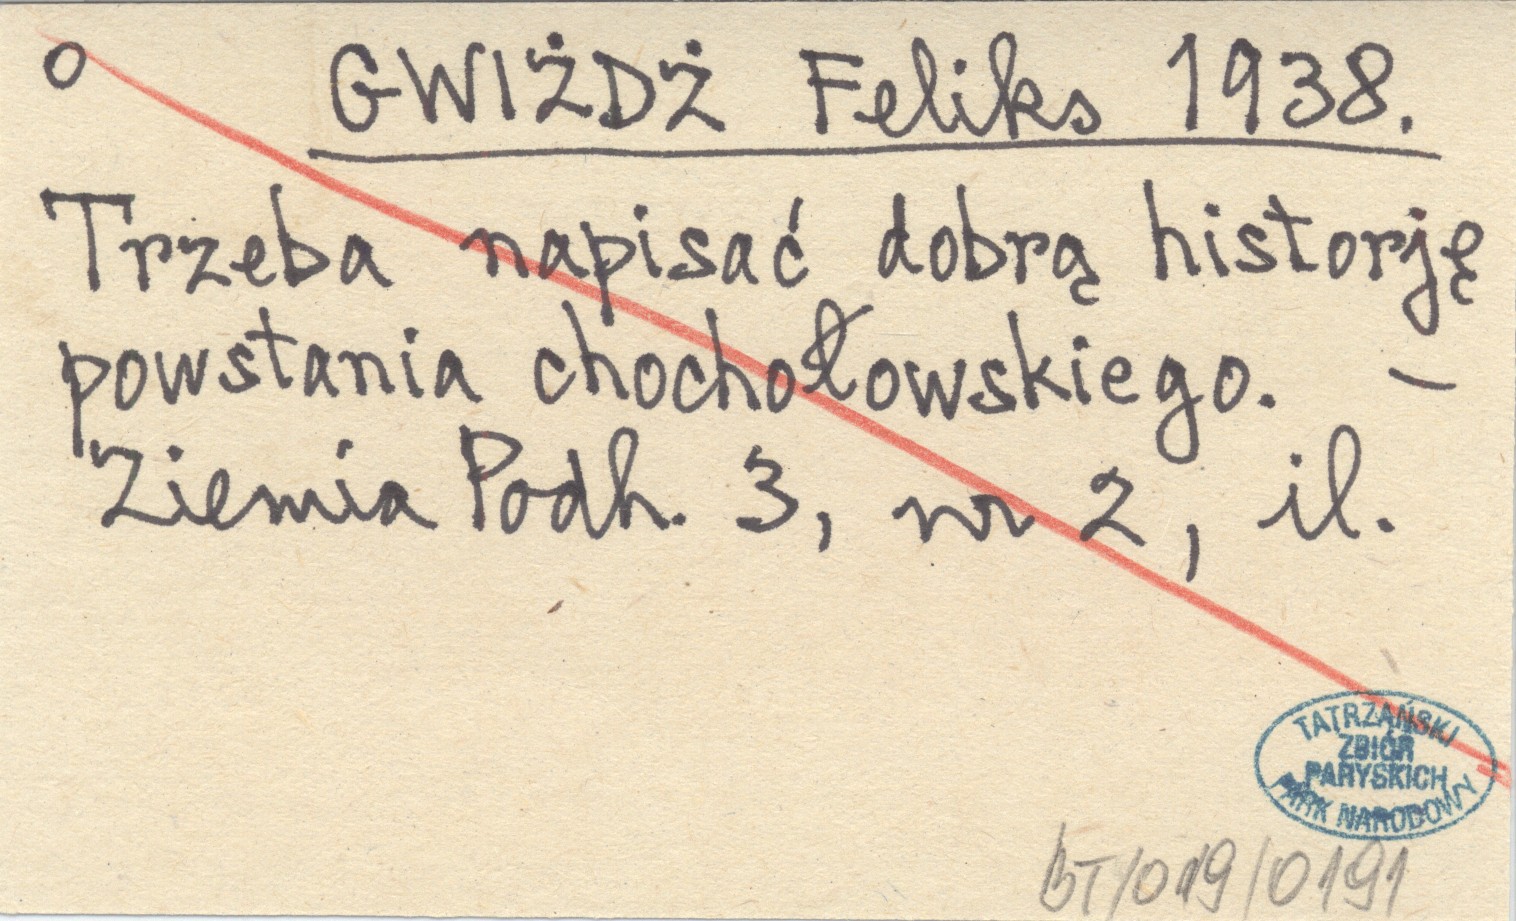 o GWIŻDŻ Feliks 1938.
Trzeba napisać dobrą historję
powstania chochołowskiego. –
Ziemia Podh. 3, nr 2, il.
TATRZAŃSKI
ZBIÓR
PARYSKICH
PARK NARODOWY
BT/019/0191